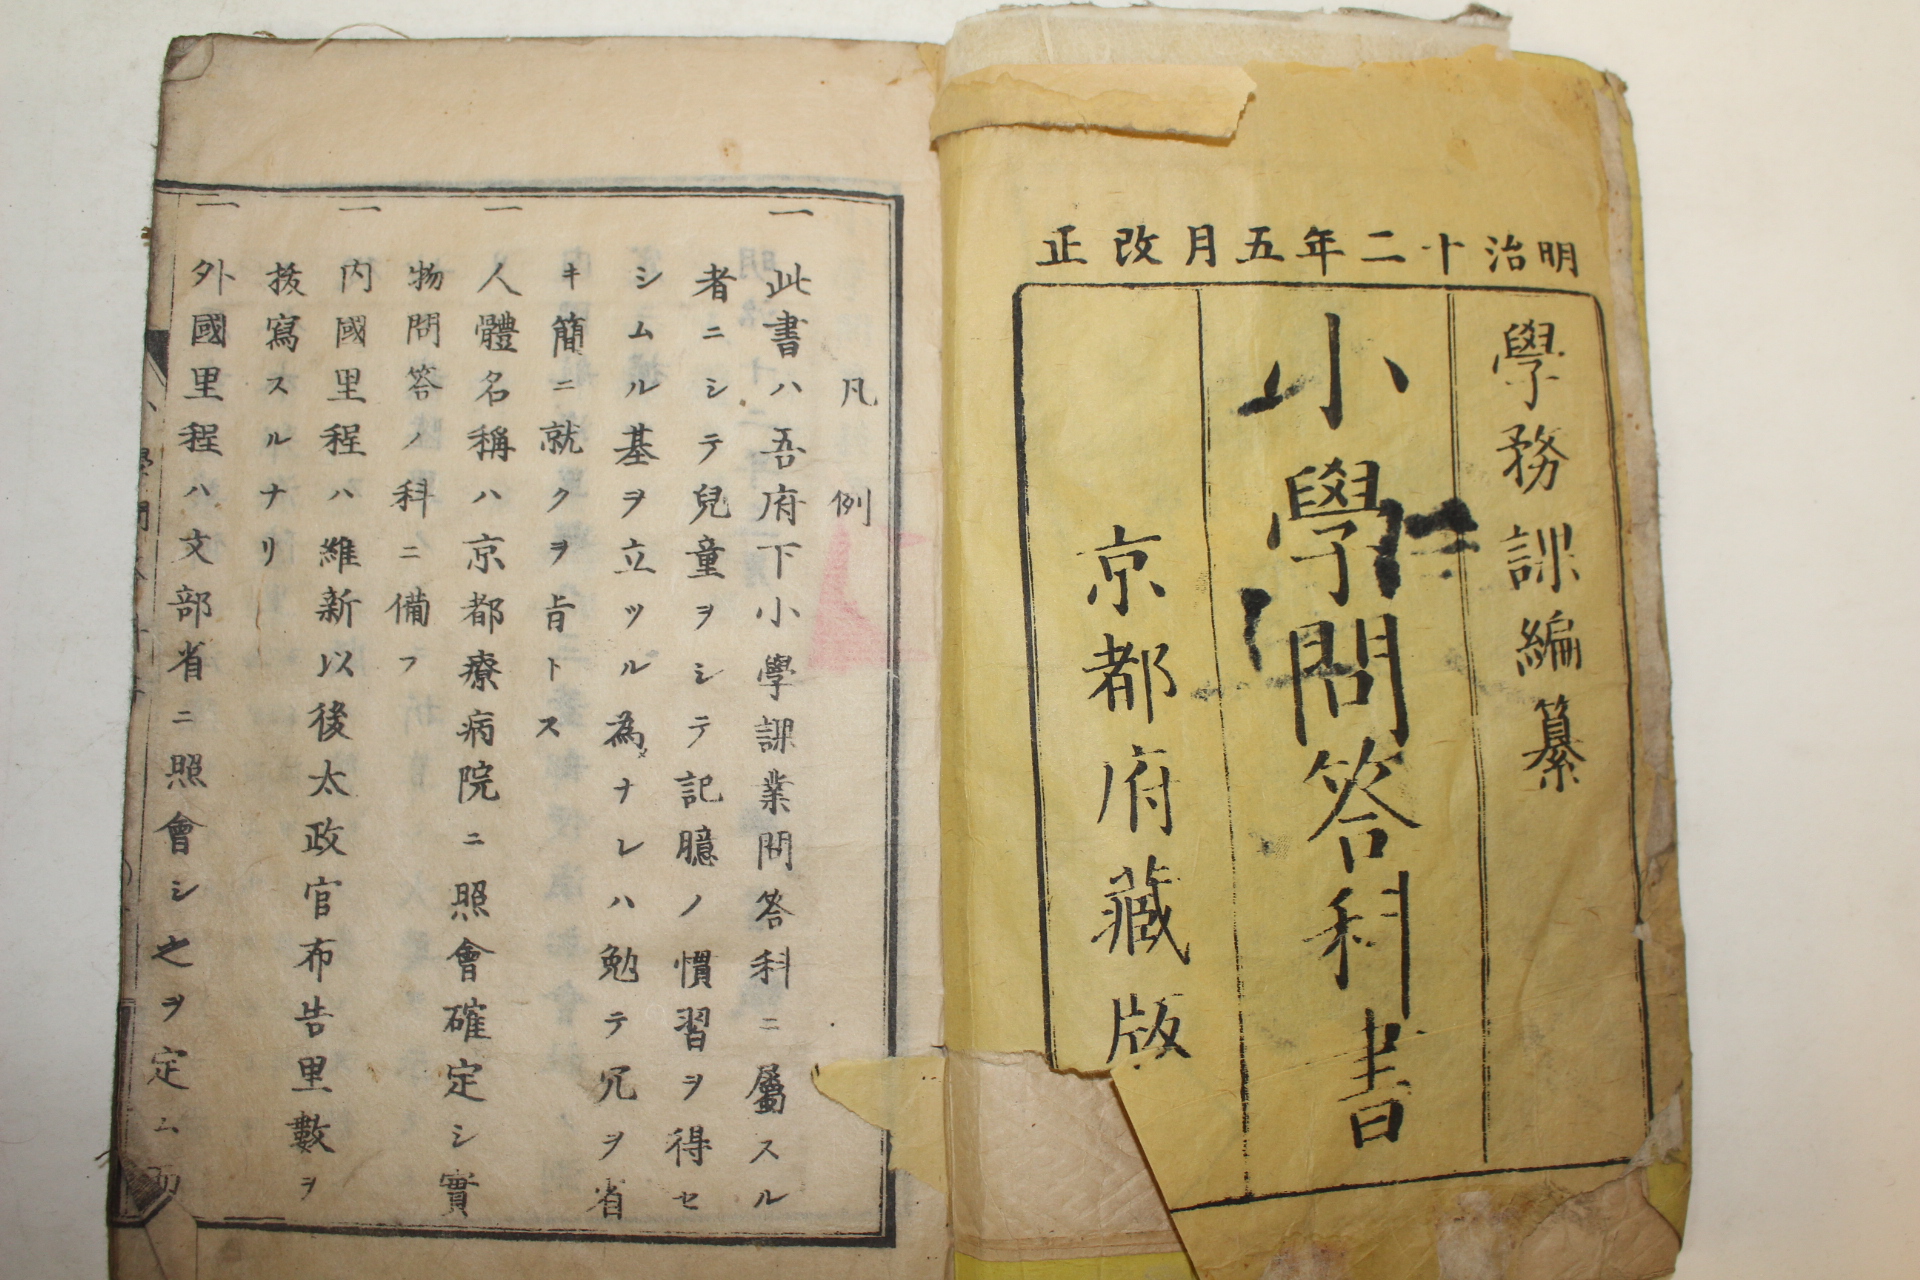 明治十二年五月改正
學務課編纂
小學問答科書
京都府藏版
凡例
一此書ハ吾府下小學課業問答科ニ屬スル
者ニシテ兒童ヲシテ記臆ノ慣習ヲ得セ
シムル基ヲ立ツル為ナレハ勉テ冗ヲ省
キ簡ニ就クヲ旨トス
一人體名稱ハ京都療病院ニ照會確定シ實
物問答ノ科ニ備フ
一内國里程ハ維新以後太政官布告里數ヲ
拔寫スルナリ
一外國里程ハ文部省ニ照會シ之ヲ定ム